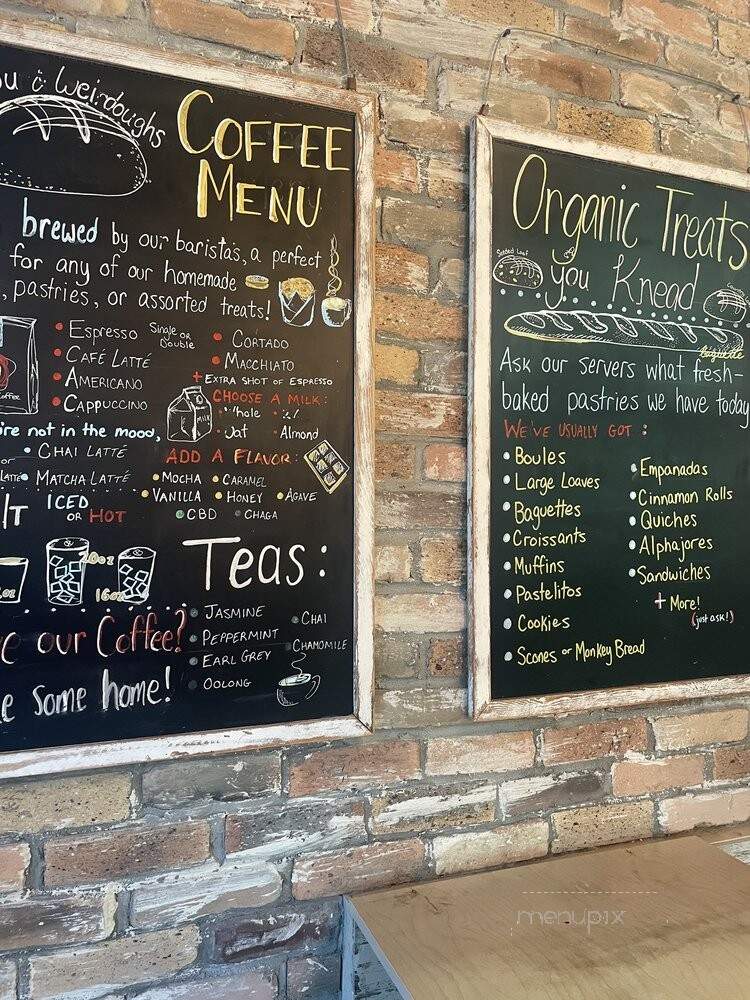 & Weirdoughs
COFFEE
MENU
brewed by our barista's, a perfect
for any of our homemade
, pastries, or assorted treats!
Espresso Single or Double
CAFÉ LATTÉ
AMERICANO
CAPPUCCINO
CORTADO
MACCHIATO
+ EXTRA SHOT OF ESPRESSO
MILK
CHOOSE A MILK:
Almond
're not in the mood,
CHAI LATTÉ
or
MATCHA LATTÉ
ADD A FLAVOR:
MOCHA
CARAMEL
VANILLA
HONEY
AGAVE
CBD
CHAGA
IT ICED
OR HOT
20oz
16oz
our Coffee?
some home!
TEAS:
JASMINE
PEPPERMINT
EARL GREY
OOLONG
CHAI
CHAMOMILE
Organic Treats
Seeded Loaf
you Knead
baguette
Ask our servers what fresh-
baked pastries we have today
WE'VE USUALLY GOT :
Boules
Large Loaves
Baguettes
Croissants
Muffins
Pastelitos
Cookies
Scones or Monkey Bread
Empanadas
Cinnamon Rolls
Quiches
Alphajores
Sandwiches
+ More!
(just ask!)
menupix